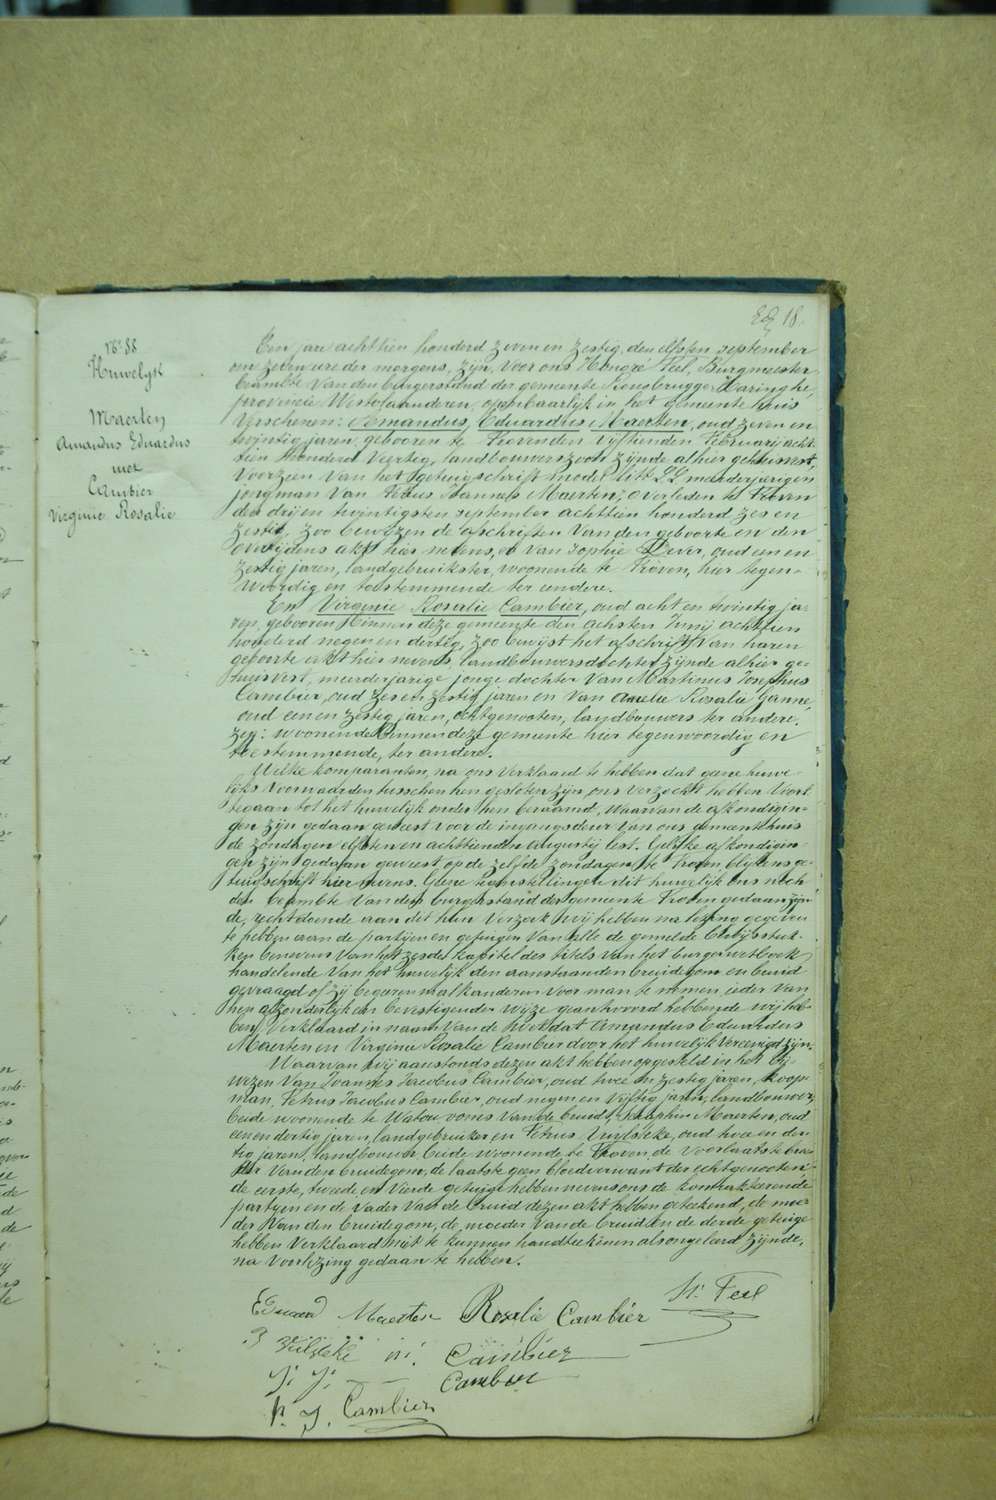 18.
No. 88
Huwelyk
Maerten
Amandus Eduardus
met
Cambier
Virginie Rosalie
Een jare achttien honderd zeven en zestig, den elfsten september
om zeven ure der morgens, zijn, voor ons Hongré Feil, Burgmeester
beambte van den burgerstand der gemeente Rousbrugge-Haringhe,
provincie Westvlaanderen, openbaarlyk in het gemeente huis
Verschenen: Amandus Eduardus Maerten, oud zeven en
twintig jaren, gebooren te Proven den vyftienden Februarij acht
tien honderd veertig, landbouwerszoon zijnde alhier gehuisvest,
voorzien van het getuigschrift model litt. meerderjarigen
jongman van Petrus Joannes Maerten, overleden te Proven
den drij en twintigsten september achttien honderd zes en
zestig, zoo bewyzen de afschriften van den geboorte en den
overlijdens akt hier nevens, en van Sophie Dever, oud een en
zestig jaren, landgebruikster, woonende te Proven, hier tegen-
woordig en toestemmende ter eendere.
En Virginie Rosalie Cambier, oud acht en twintig ja-
ren, gebooren binnen deze gemeente den achsten Junij achttien
honderd negen en dertig, zoo bewijst het afschrift van haren
geboorte akt hier nevens, landbouwersdochter zijnde alhier ge-
huisvest, meerderjarige jonge dochter van Martinus Josephus
Cambier, oud zes en zestig jaren en van Amelie Rosalie Ganne,
oud een en zestig jaren, echtgenooten, landbouwers ter andere
zy: woonende binnen deze gemeente hier tegenwoordig en
toestemmende, ter andere.
Welke komparanten, na ons verklaard te hebben dat geene huwe-
lijks voorwaarden tusschen hen gesloten zijn, ons verzocht hebben voort
te gaan tot het huwelijk onder hen beraamd, waarvan de afkondigin-
gen zijn gedaan geweest voor de ingangsdeur van ons gemeentehuis
de zondagen elfsten en achttienden augustij lest. Gelijke afkondigin-
gen zijn gedaan geweest op de zelfde zondagen te Proven blykens ge-
tuigschrift hier nevens. Geene tegenstellingen dit huwelijk ons noch
den beambte van den burgerstand der gemeente Proven gedaan zijn-
de, recht doende aan dit hun verzoek wij hebben na lezing gegeven
te hebben aan de partijen en getuigen van alle de gemelde bewijsstuk-
ken benevens van het zesde kapitel des titels van het burgerwetboek
handelende van het huwelijk den aanstaanden bruidegom en bruid
gevraagd of zij begeeren malkanderen voor man te nemen, ieder van
hen afzonderlijk en bevestigender wijze geantwoord hebbende wij heb-
ben verklaard in naam van de wet dat Amandus Eduardus
Maerten en Virginie Rosalie Cambier door het huwelijk vereenigd zijn.
Waarvan wij aanstonds dezen akt hebben opgesteld in het bij
wezen van Joannes Jacobus Cambier, oud twee en zestig jaren, koop
man, Petrus Jacobus Cambier, oud negen en vyftig jaren, landbouwer,
beide woonende te Watou, ooms van de bruid, Seraphin Maerten, oud
een en dertig jaren, landgebruiker en Petrus Vuylsteke, oud twee en der-
tig jaren, landbouwer beide woonende te Proven, de voorlaatste broe-
der van den bruidegom, de laatste geen bloedverwant der echtgenooten:
de eerste, tweede en vierde getuige hebben nevens ons de kontrakteerende
partyen en de vader van de bruid dezen akt hebben geteekend, de moe-
der van den bruidegom, de moeder van de bruid en de derde getuige
hebben verklaard niet te kunnen handteekenen als ongeleerd zijnde,
na voorlezing gedaan te hebben.
H: Feil
Eduard Maerten Rosalie Cambier
P Vuilsteke m: Cambier
J: J: Cambier
P. J. Cambier